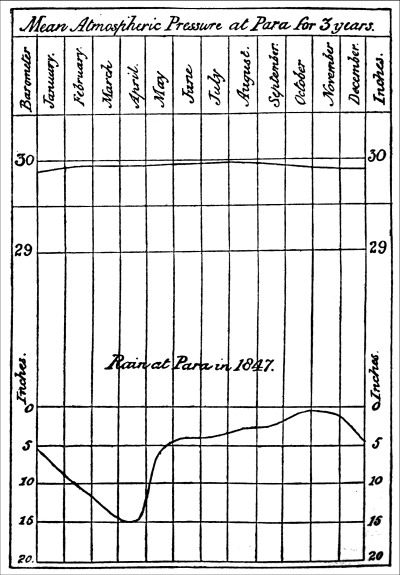 Mean Atmospheric Pressure at Para for 3 years.
Barometer January. February. March April. May June July August. September. October November December. Inches.
30 30
29 29
Rain at Para in 1847.
Inches. Inches.
0 0
5 5
10 10
15 15
20. 20